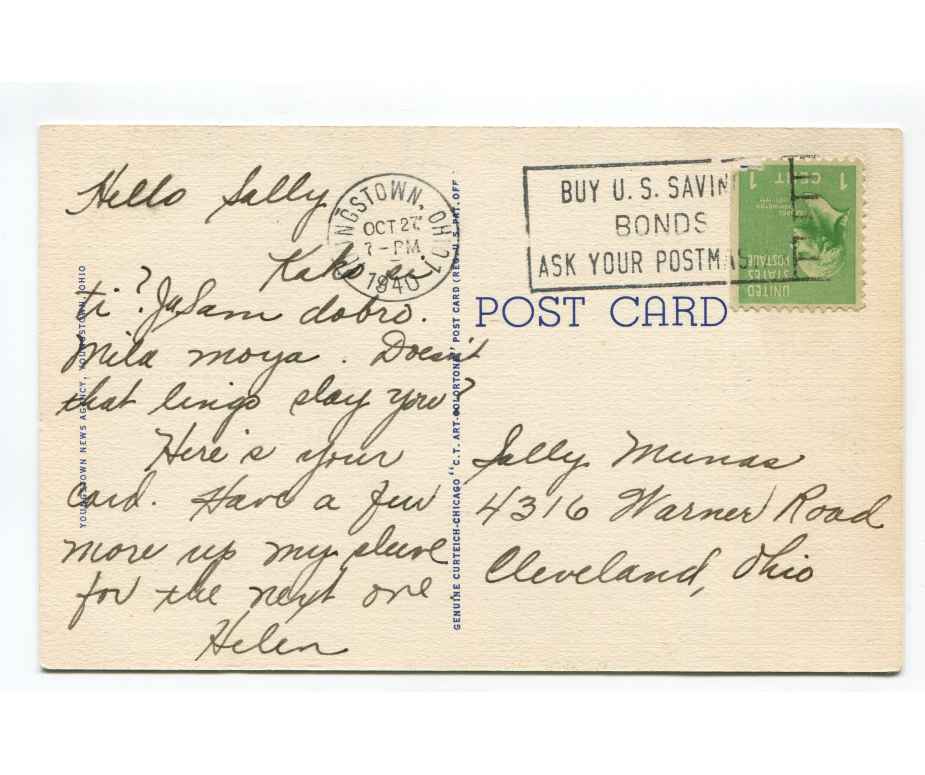 Hello Sally
Kako si
ti? Ja Sam dobro.
Mila moya. Doesn't
that lingo slay you?
Here's your
card. Have a few
more up my sleeve
for the next one
Helen
YOUNGSTOWN NEWS AGENCY, YOUNGSTOWN, OHIO
GENUINE CURTEICH-CHICAGO "C.T. ART-COLORTONE" POST CARD (REG. U.S. PAT. OFF.)
YOUNGSTOWN, OHIO
OCT 27
7-PM
1940
BUY U.S. SAVIN
BONDS
ASK YOUR POSTMAS
1 CENT 1
UNITED
STATES
POSTAGE
POST CARD
Sally Munas
4316 Warner Road
Cleveland, Ohio